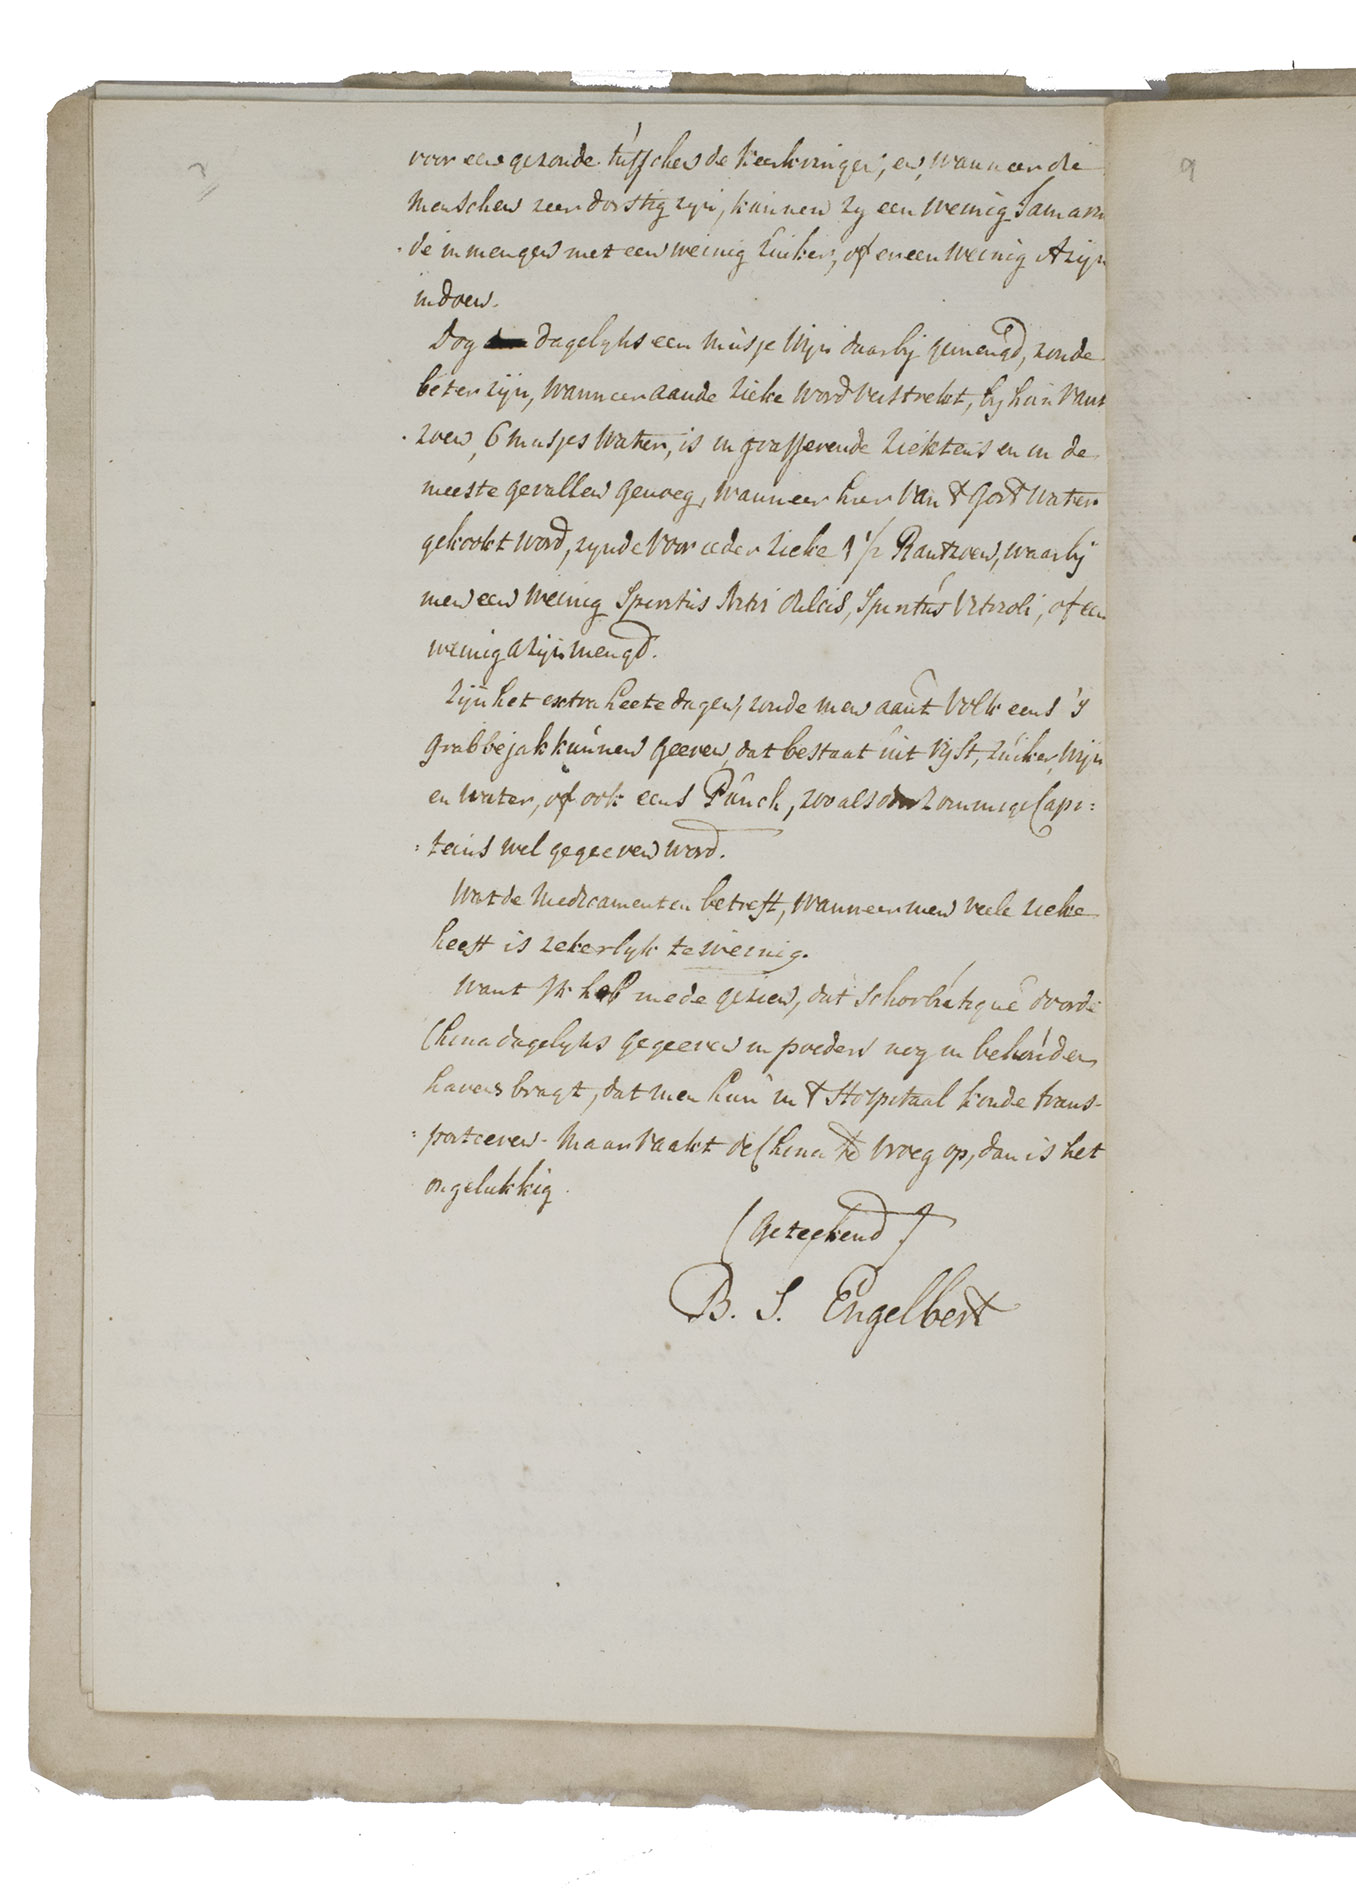 voor een gezonde tusschen de keerkringen, en, wanneer die
menschen zeer dorstig zijn, kunnen zy een weinig Tamarin
de in mengen met een weinig Zuiker, of er een weinig Azijn
in doen.
Dog dagelyks een musje Wijn daarbij gemengd, zoude
beter zijn, wanneer aan de zieke word verstrekt, by hun Rant
zoen, 6 musjes Water, is in grasserende ziektens en in de
meeste gevallen genoeg, wanneer hier van 't Gort water
gekookt word, zynde voor ieder zieke 1 1/2 Rantzoen, waarbij
men een weinig Spiritus Nitri dulcis, Spiritus Vitrioli, of een
weinig azijn mengd.
Zijn het extra heete dagen, zoude men aan 't Volk eens 's
grabbejak kunnen geeven, dat bestaat uit Ryst, Zuiker, Wijn
en Water, of ook eens Punch, zoo als door zommige Capi:
:teins wel gegeeven word.
Wat de Medicamenten betreft, wanneer men veele zieke
heeft is zekerlyk te weinig.
Want Ik heb mede gezien, dat schorbutique door de
China dagelyks gegeeven in poeders nog in behouden
havens bragt, dat men hun in 't Hospitaal konde trans-
:porteeren. Maar raakt de China te vroeg op, dan is het
ongelukkig.
(Geteekend)
B. S. Engelbert
9